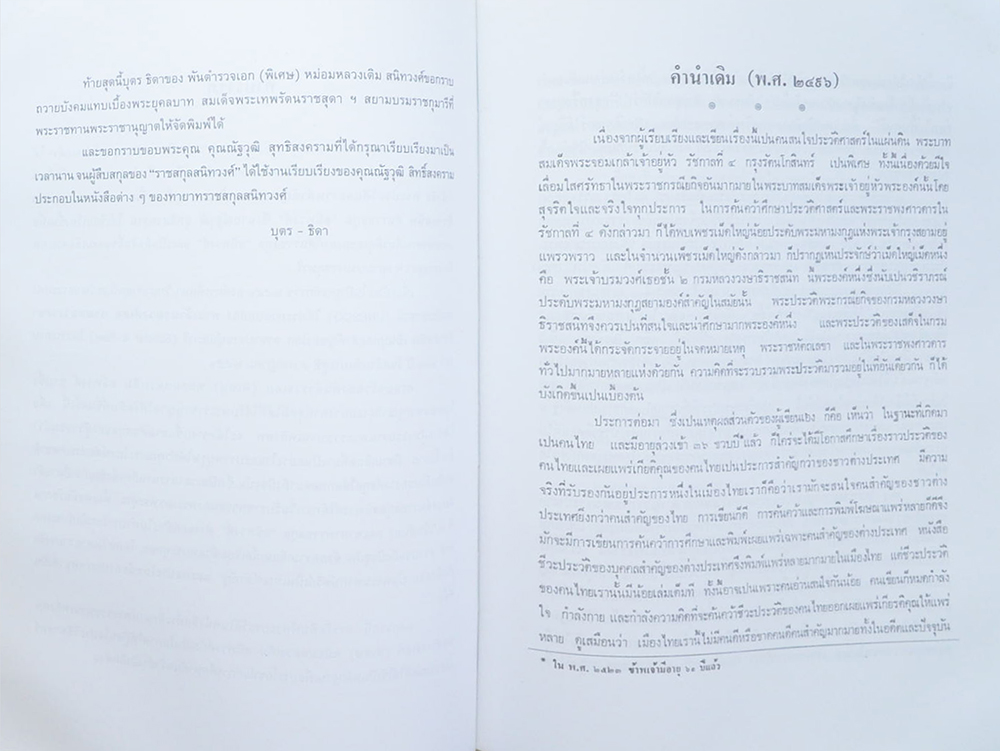 ท้ายสุดนี้บุตร ธิดาของ พันตำรวจเอก (พิเศษ) หม่อมหลวงเติม สนิทวงศ์ขอกราบ
ถวายบังคมแทบเบื้องพระยุคลบาท สมเด็จพระเทพรัตนราชสุดา ฯ สยามบรมราชกุมารีที่
พระราชทานพระราชานุญาตให้จัดพิมพ์ได้
และขอกราบขอบพระคุณ คุณณัฐวุฒิ สุทธิสงครามที่ได้กรุณาเรียบเรียงมาเป็น
เวลานาน จนผู้สืบสกุลของ “ราชสกุลสนิทวงศ์” ได้ใช้งานเรียบเรียงของคุณณัฐวุฒิ สิทธิ์สงคราม
ประกอบในหนังสือต่าง ๆ ของทายาทราชสกุลสนิทวงศ์
บุตร – ธิดา
คำนำเดิม (พ.ศ. ๒๔๙๖)
เนื่องจากผู้เรียบเรียงและเขียนเรื่องนี้เป็นคนสนใจประวัติศาสตร์ในแผ่นดิน พระบาท
สมเด็จพระจอมเกล้าเจ้าอยู่หัว รัชกาลที่ ๔ กรุงรัตนโกสินทร์ เป็นพิเศษ ทั้งนี้เนื่องด้วยมีใจ
เลื่อมใสศรัทธาในพระราชกรณียกิจอันมากมายในพระบาทสมเด็จพระเจ้าอยู่หัวพระองค์นั้นโดย
สุจริตใจและจริงใจทุกประการ ในการค้นคว้าศึกษาประวัติศาสตร์และพระราชพงศาวดารใน
รัชกาลที่ ๔ ดังกล่าวมา ก็ได้พบเพชรเม็ดใหญ่น้อยประดับพระมหามงกุฎแห่งพระเจ้ากรุงสยามอยู่
แพรวพราว และในจำนวนเพ็ชรเม็ดใหญ่ดังกล่าวมา ก็ปรากฏเห็นประจักษ์ว่าเม็ดใหญ่เม็ดหนึ่ง
คือ พระเจ้าบรมวงศ์เธอชั้น ๒ กรมหลวงวงษาธิราชสนิท นี้พระองค์หนึ่งซึ่งนับเป็นวชิราภรณ์
ประดับพระมหามงกุฎสยามองค์สำคัญในสมัยนั้น พระประวัติพระกรณียกิจของกรมหลวงวงษา
ธิราชสนิทจึงควรเป็นที่สนใจและน่าศึกษามากพระองค์หนึ่ง และพระประวัติของเสด็จในกรม
พระองค์นี้ได้กระจัดกระจายอยู่ในจดหมายเหตุ พระราชหัตถเลขา และในพระราชพงศาวดาร
ทั่วไปมากมายหลายแห่งด้วยกัน ความคิดที่จะรวบรวมพระประวัติมารวมอยู่ในที่อันเดียวกัน ก็ได้
บังเกิดขึ้นเป็นเบื้องต้น
ประการต่อมา ซึ่งเป็นเหตุผลส่วนตัวของผู้เขียนเอง ก็คือ เห็นว่า ในฐานะที่เกิดมา
เป็นคนไทย และมีอายุล่วงเข้า ๓๖ ขวบปี* แล้ว ก็ใคร่จะได้มีโอกาสศึกษาเรื่องราวประวัติของ
คนไทยและเผยแพร่เกียติคุณของคนไทยเป็นประการสำคัญกว่าของชาวต่างประเทศ มีความ
จริงที่รับรองกันอยู่ประการหนึ่งในเมืองไทยเราก็คือว่าเรามักจะสนใจคนสำคัญของชาวต่าง
ประเทศยิ่งกว่าคนสำคัญของไทย การเขียนก็ดี การค้นคว้าและการพิมพ์โฆษณาแพร่หลายก็ดีจึง
มักจะมีการเขียนการค้นคว้าการศึกษาและพิมพ์เผยแพร่เฉพาะคนสำคัญของต่างประเทศ หนังสือ
ชีวะประวัติของบุคคลสำคัญของต่างประเทศจึงพิมพ์แพร่หลายมากมายในเมืองไทย แต่ชีวะประวัติ
ของคนไทยเรานั้นมีน้อยเล่มเต็มที ทั้งนี้อาจเป็นเพราะคนอ่านสนใจกันน้อย คนเขียนก็หมดกำลัง
ใจ กำลังกาย และกำลังความคิดที่จะค้นคว้าชีวะประวัติของคนไทยออกเผยแพร่เกียรติคุณให้แพร่
หลาย ดูเสมือนว่า เมืองไทยเรานี้ไม่มีคนดีหรือขาดคนดีคนสำคัญมากมายทั้งในอดีตและปัจจุบัน
* ใน พ.ศ. ๒๕๒๓ ข้าพเจ้ามีอายุ ๖๑ ปีแล้ว